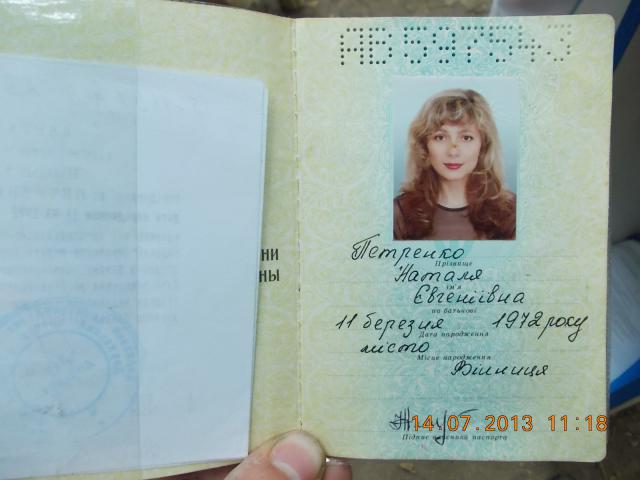 АВ 597543
НИ
НЫ
Петренко
Прізвище
Наталя
ім'я
Євгеніївна
по батькові
11 березня 1972 року
Дата народження
місто
Місце народження
Вінниця
14.07.2013 11:18
Підпис власника паспорта